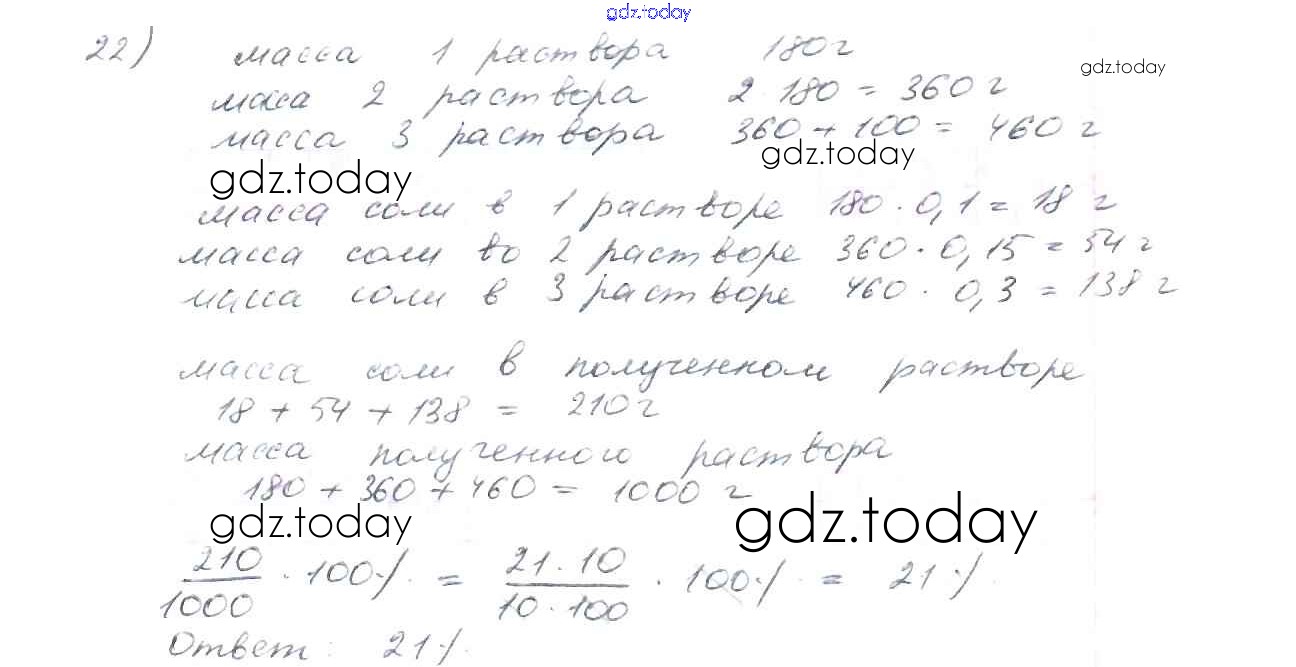 gdz.today
22) масса 1 раствора 180г
gdz.today
маса 2 раствора 2·180 = 360 г
масса 3 раствора 360 + 100 = 460 г
gdz.today
gdz.today
масса соли в 1 растворе 180 · 0,1 = 18 г
масса соли во 2 растворе 360 · 0,15 = 54 г
масса соли в 3 растворе 460 · 0,3 = 138 г
масса соли в полученном растворе
18 + 54 + 138 = 210 г
масса полученного раствора
180 + 360 + 460 = 1000 г
gdz.today
gdz.today
210/1000 · 100% = 21·10/10·100 · 100% = 21%
Ответ: 21%.